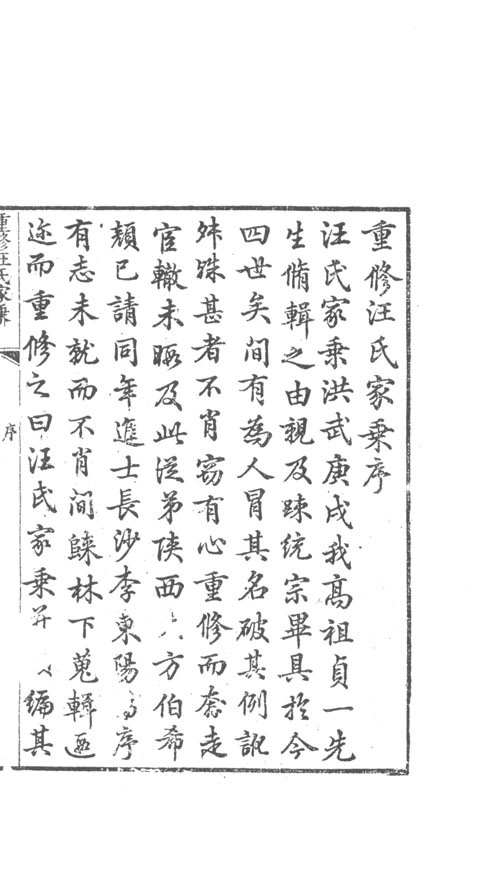 重修汪氏家乗序
汪氏家乗洪武庚戌我髙祖貞一先
生脩輯之由親及踈統宗畢具於今
四世矣间有為人冒其名破其例訛
舛殊甚者不肖窃有心重修而奔走
宦轍未暇及此従弟陕西方伯希
顔已請同年進士長沙李東陽序
有志未就而不肖间歸林下蒐輯
迩而重修之曰汪氏家乗并編其
重修汪氏家乗
序